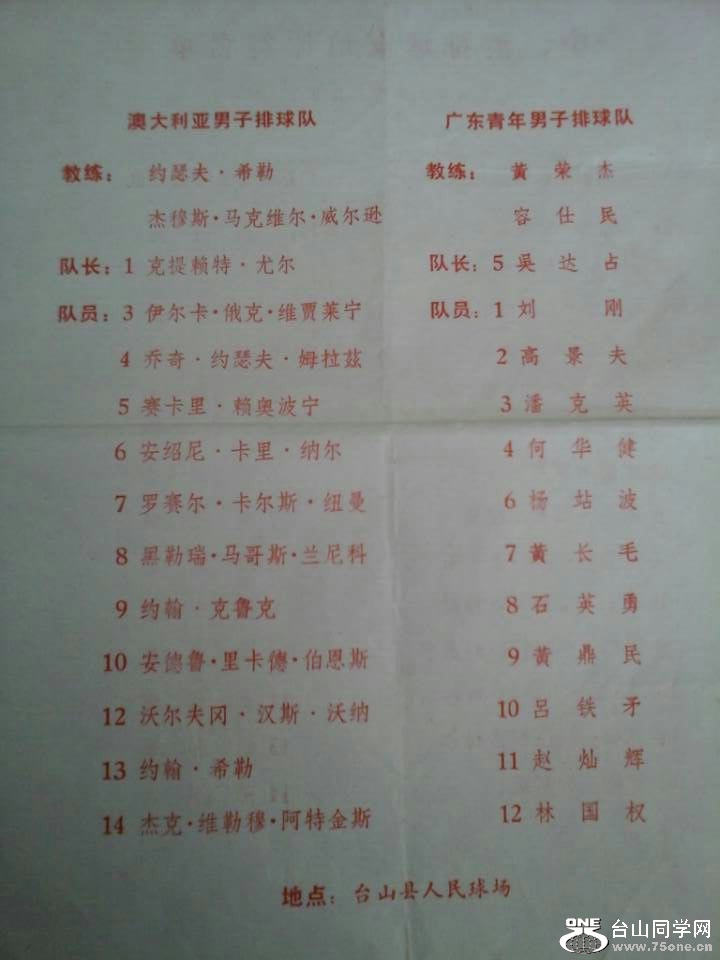 澳大利亚男子排球队
教练: 约瑟夫·希勒
杰穆斯·马克维尔·威尔逊
队长: 1 克提赖特·尤尔
队员: 3 伊尔卡·俄克·维贾莱宁
4 乔奇·约瑟夫·姆拉兹
5 赛卡里·赖奥波宁
6 安绍尼·卡里·纳尔
7 罗赛尔·卡尔斯·纽曼
8 黑勒瑞·马哥斯·兰尼科
9 约翰·克鲁克
10 安德鲁·里卡德·伯恩斯
12 沃尔夫冈·汉斯·沃纳
13 约翰·希勒
14 杰克·维勒穆·阿特金斯
广东青年男子排球队
教练: 黄荣杰
容仕民
队长: 5 吴达占
队员: 1 刘刚
2 高景夫
3 潘克英
4 何华健
6 杨站波
7 黄长毛
8 石英勇
9 黄鼎民
10 吕铁矛
11 赵灿辉
12 林国权
地点: 台山县人民球场
ONE 台山同学网
www.75one.cn